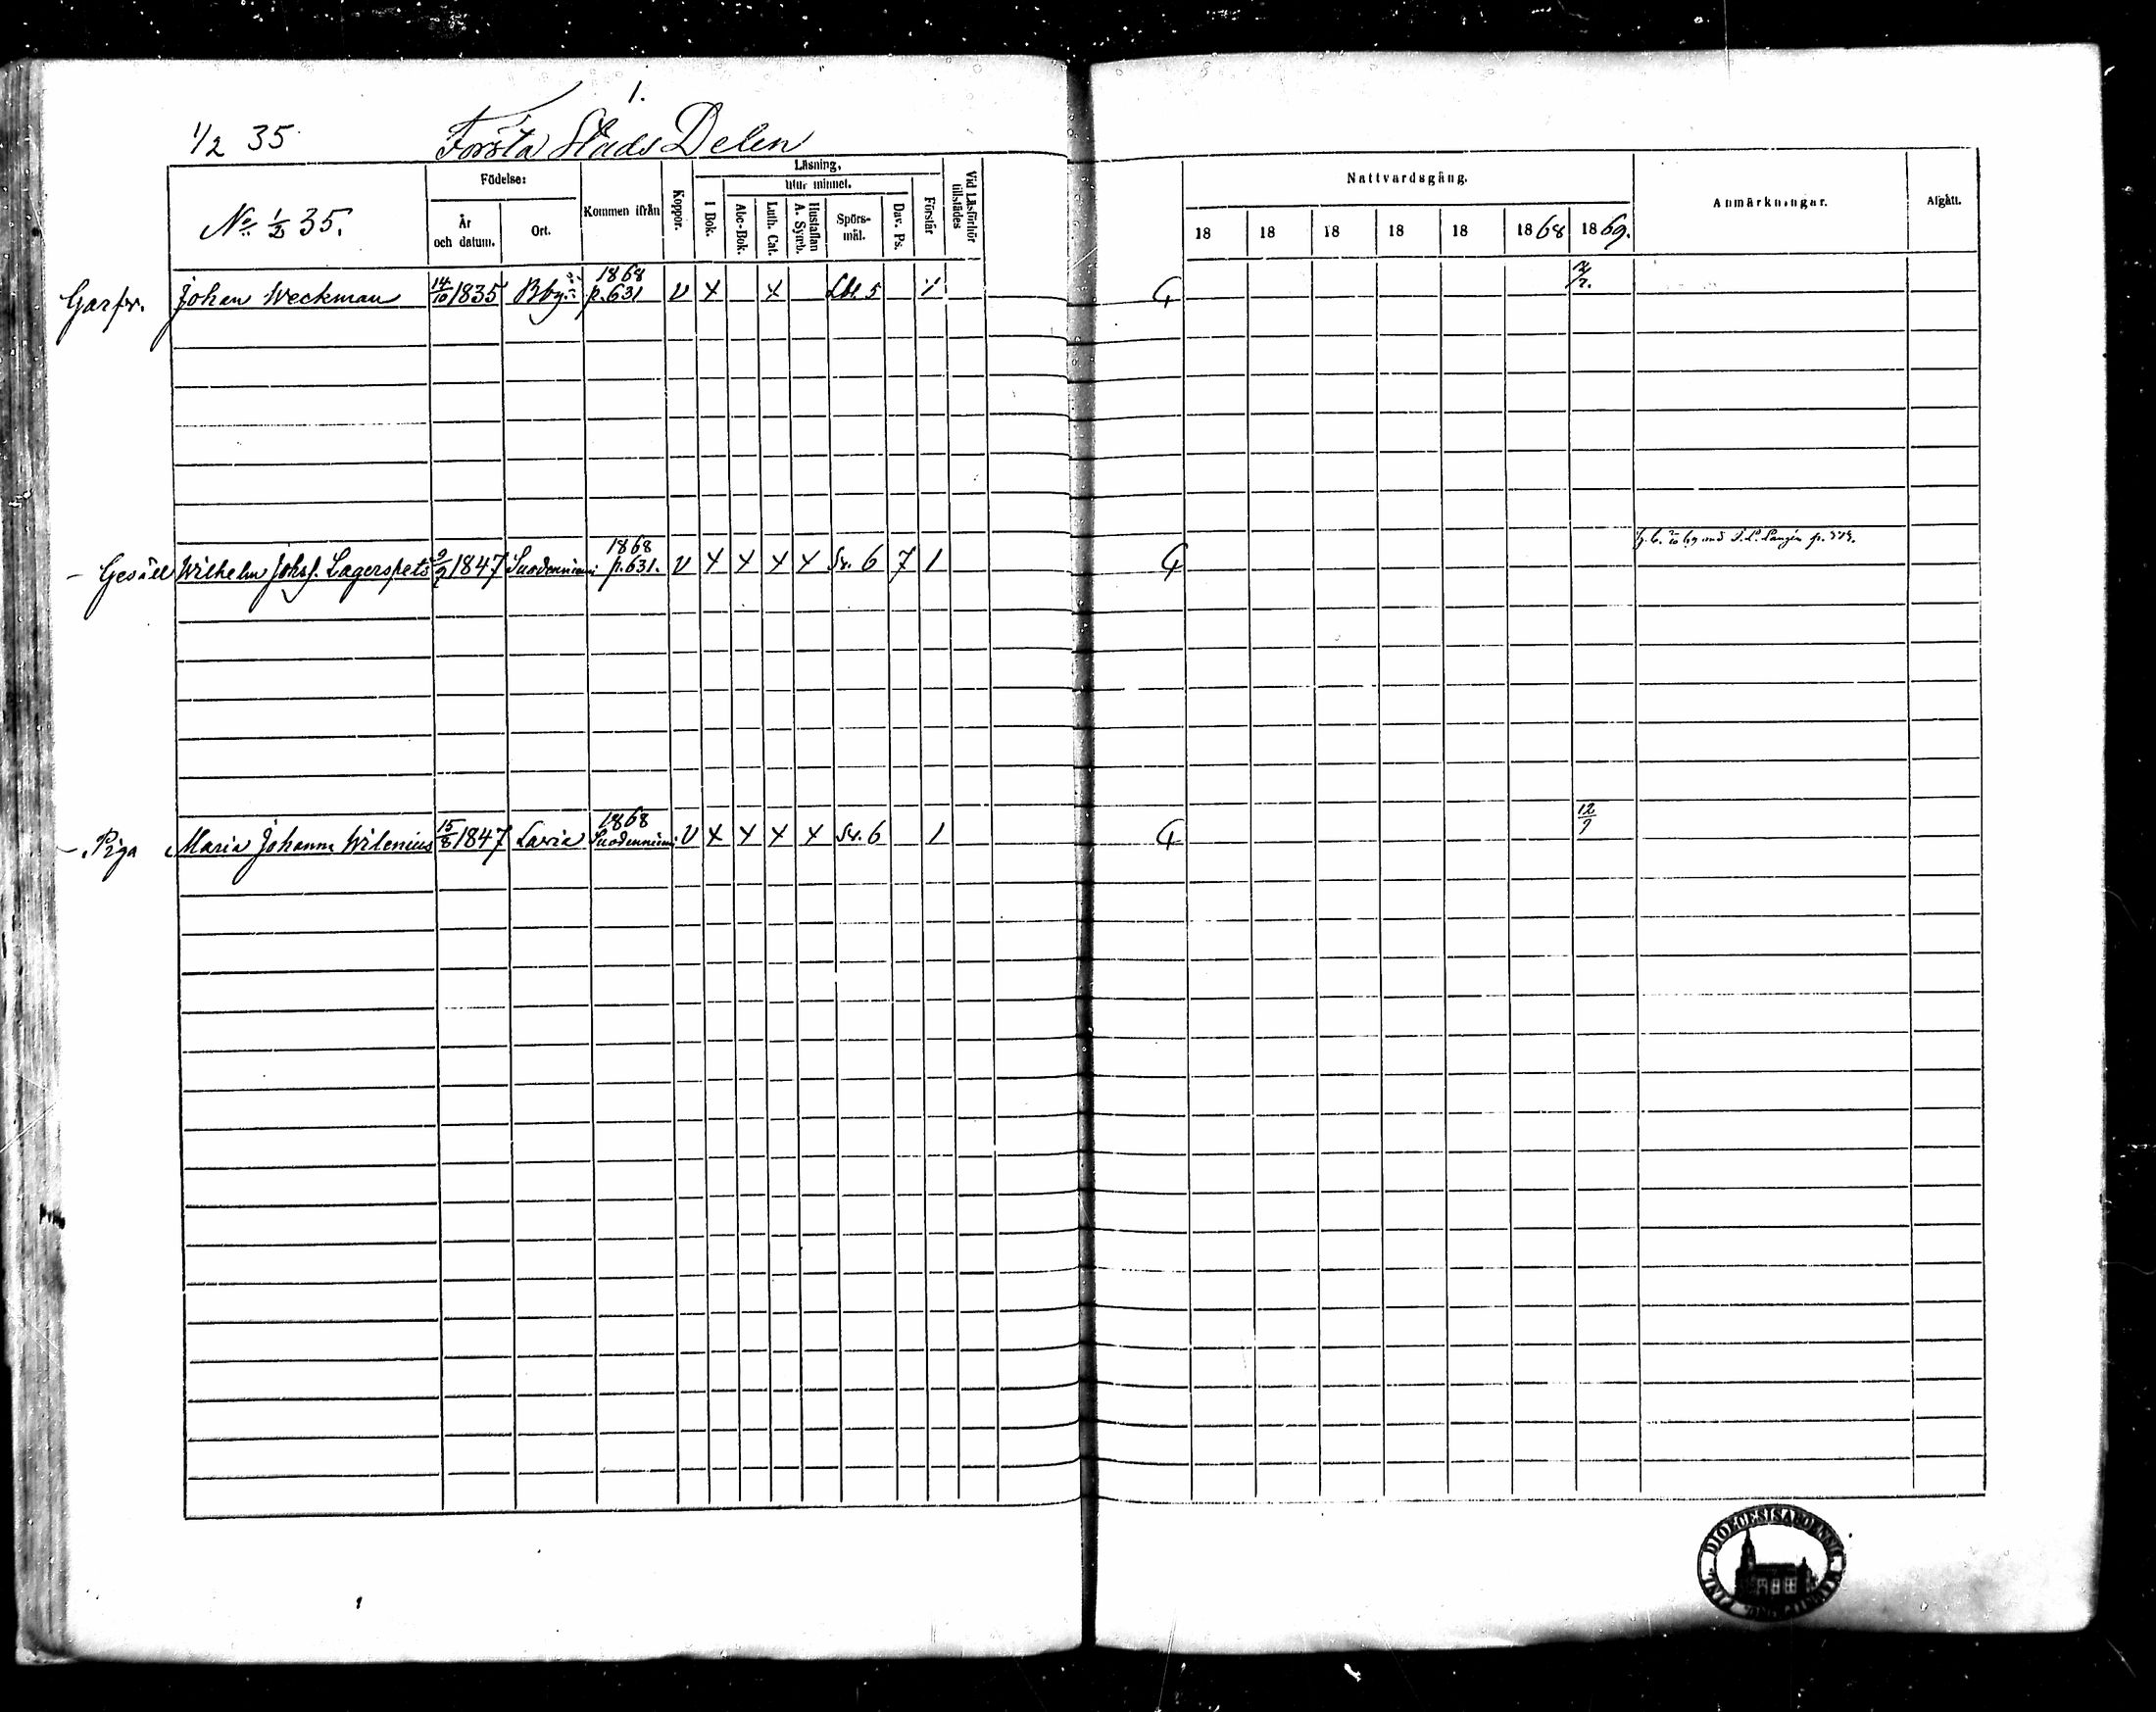 1.
1/2 35 Första Stads Delen
No 1/2 35.
Födelse:
År och datum.
Ort.
Kommen ifrån
Koppor.
Läsning,
I Bok.
utur minnet.
Abc-Bok.
Luth. Cat.
Hustaflan A. Symb.
Spörsmål.
Dav. Ps.
Förstår
Vid Läsförhör tillstädes
Nattvardsgång.
18 18 18 18 18 1868 1869.
Anmärkningar.
Afgått.
1868
Garfv. Johan Weckman 14/10 1835 Bby p. 631 v x x 5
1868
- Gesäll Wilhelm Johsf. Lagerspets 1847 Suodenniemi p. 631. v x x x x Sv. 6 7 1
1868 12/7
- Piga Maria Johanna Wilenius 15/8 1847 Lavia Suodenniemi v x x x x Sv. 6 1
DIOECESIS ABOENSIS